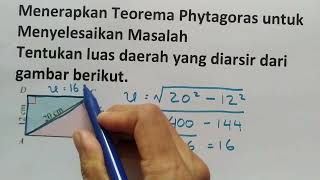 Menerapkan Teorema Phytagoras untuk
Menyelesaikan Masalah
Tentukan luas daerah yang diarsir dari
gambar berikut.
D u = 16
12 cm 20 cm
A
u = √20² − 12²
400 − 144
6 = 16